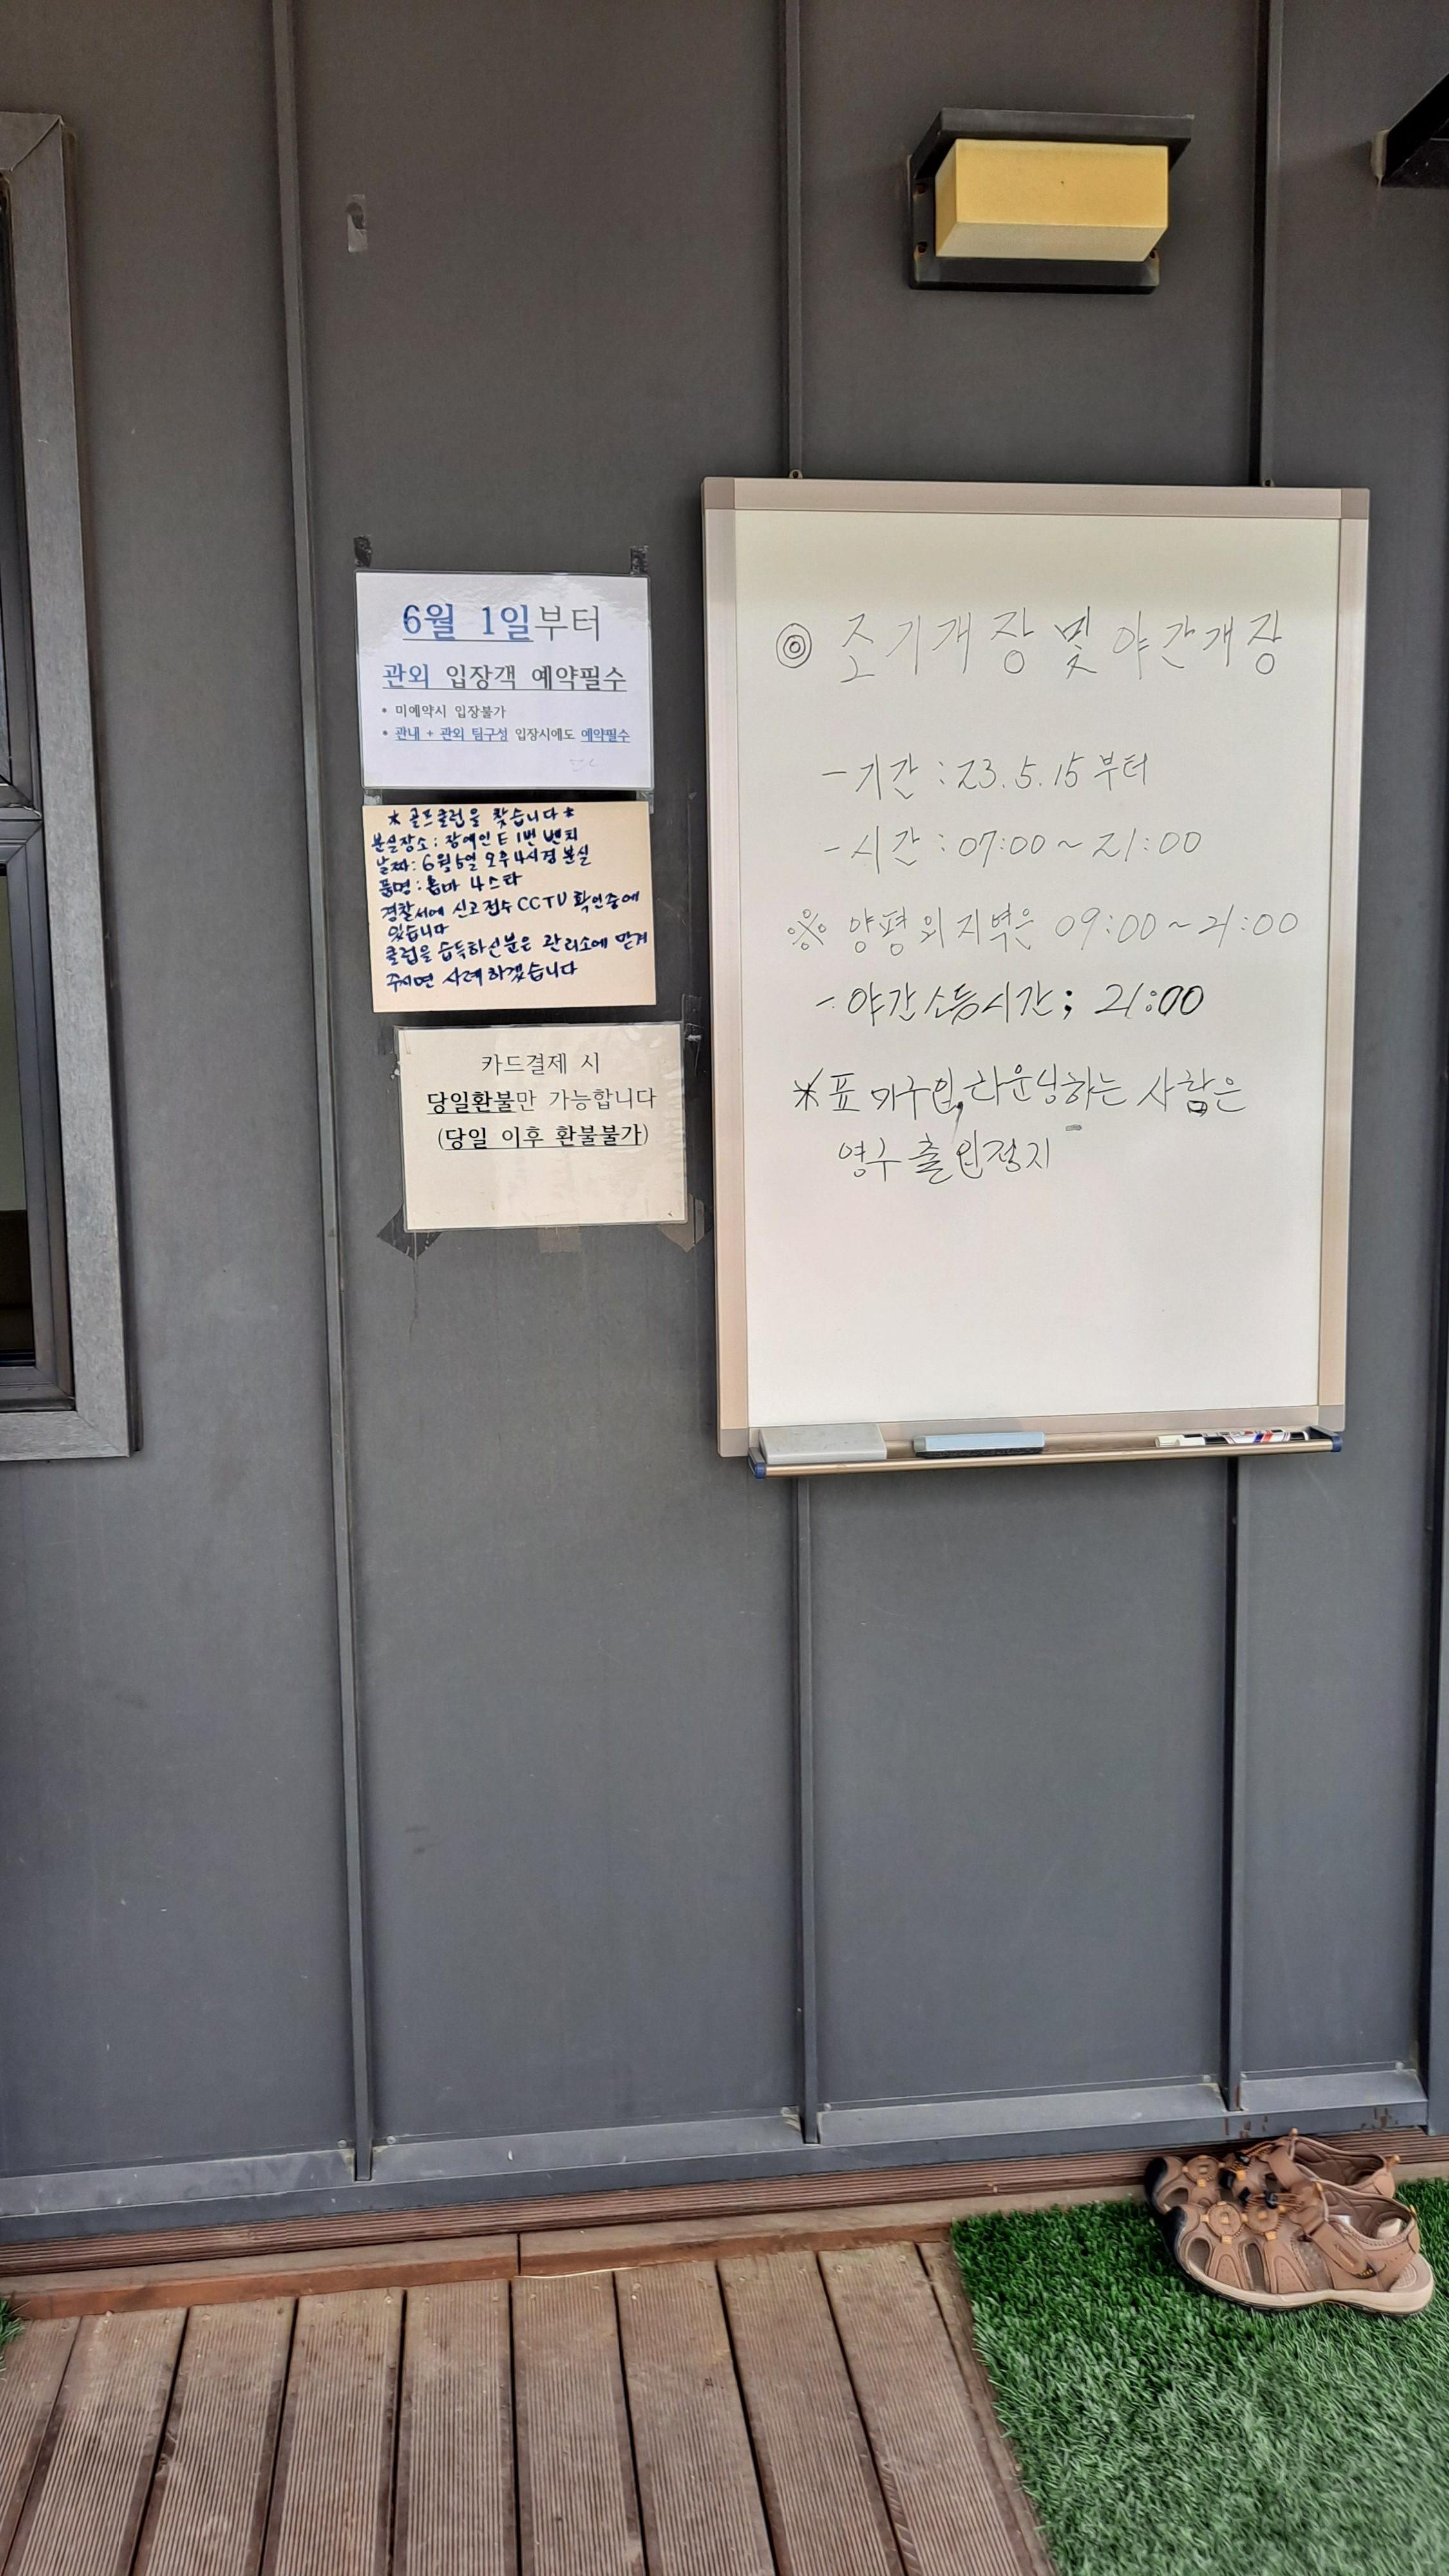 6월 1일부터
관외 입장객 예약필수
• 미예약시 입장불가
• 관내 + 관외 팀구성 입장시에도 예약필수
* 골프클럽을 찾습니다 *
분실장소 : 장애인E 1번 벤치
날짜 : 6월 6일 오후 4시경 분실
품명 : 혼마 4스타
경찰서에 신고접수 CCTV 확인중에
있습니다
클럽을 습득하신분은 관리소에 맡겨
주시면 사례하겠습니다
카드결제 시
당일환불만 가능합니다
(당일 이후 환불불가)
◎ 조기개장 및 야간개장
- 기간 : 23.5.15 부터
- 시간 : 07:00 ~ 21:00
※ 양평외지역은 09:00 ~ 21:00
- 야간소등시간 ; 21:00
※ 표 미구입, 라운닝하는 사람은
영구출입정지